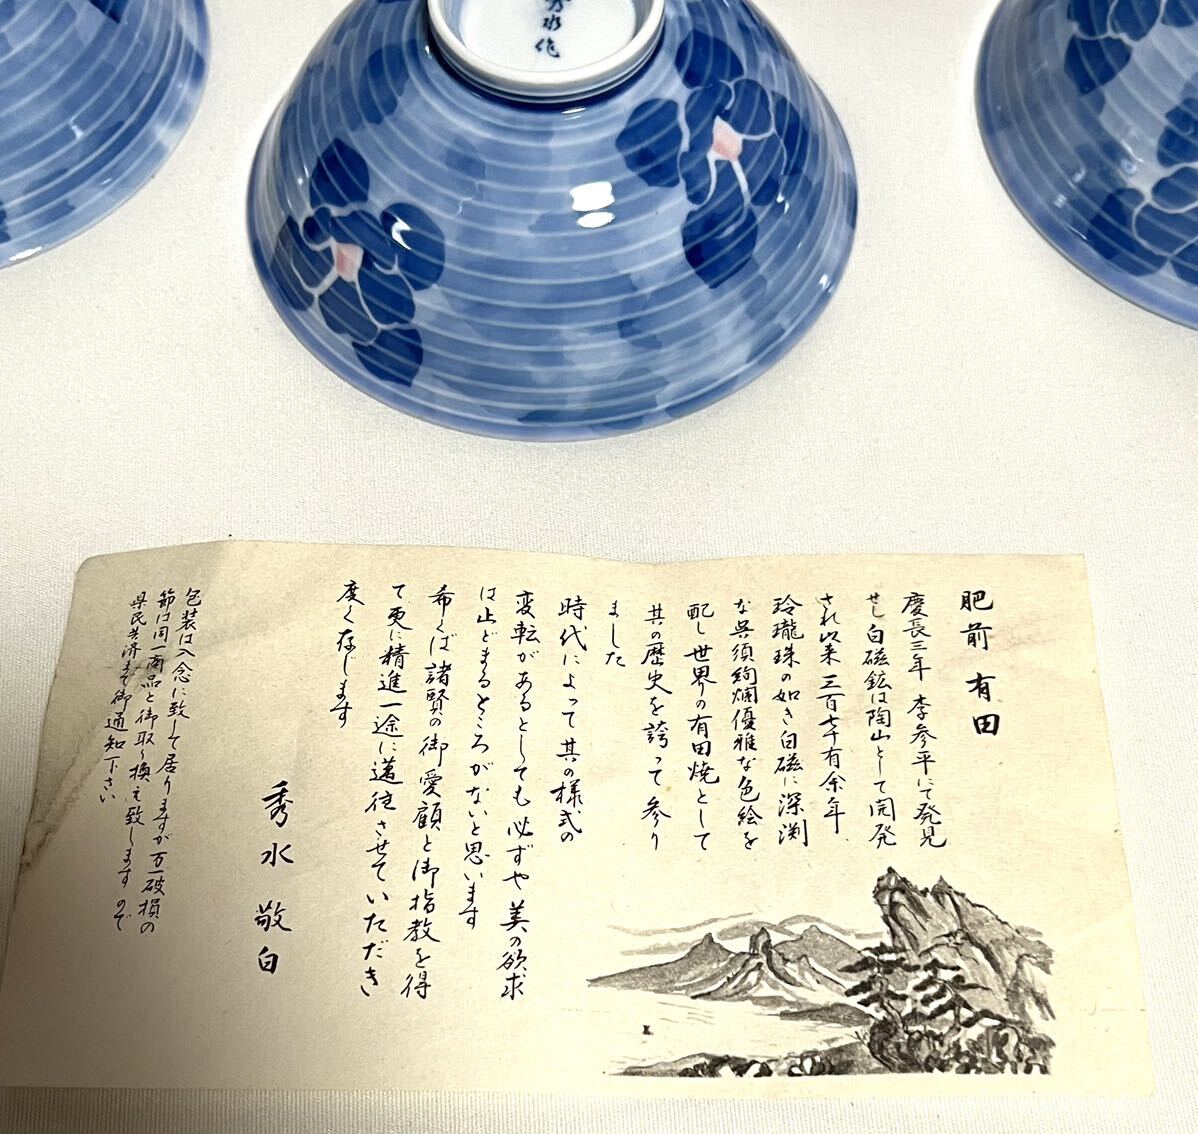 秀水作
肥前 有田
慶長三年 李参平にて発見
せし白磁鉱は陶山として開発
され以来三百七十有余年
玲瓏珠の如き白磁に深渕
な呉須絢爛優雅な色絵を
配し世界の有田焼として
其の歴史を誇って参り
ました
時代によって其の様式の
変転があるとしても必ずや美の欲求
は止どまるところがないと思います
希くば諸賢の御愛顧と御指教を得
て更に精進一途に邁往させていただき
度く存じます
秀水 敬白
包装は入念に致して居りますが万一破損の
節は同一商品と御取り換え致しますので
県民共済まで御通知下さい